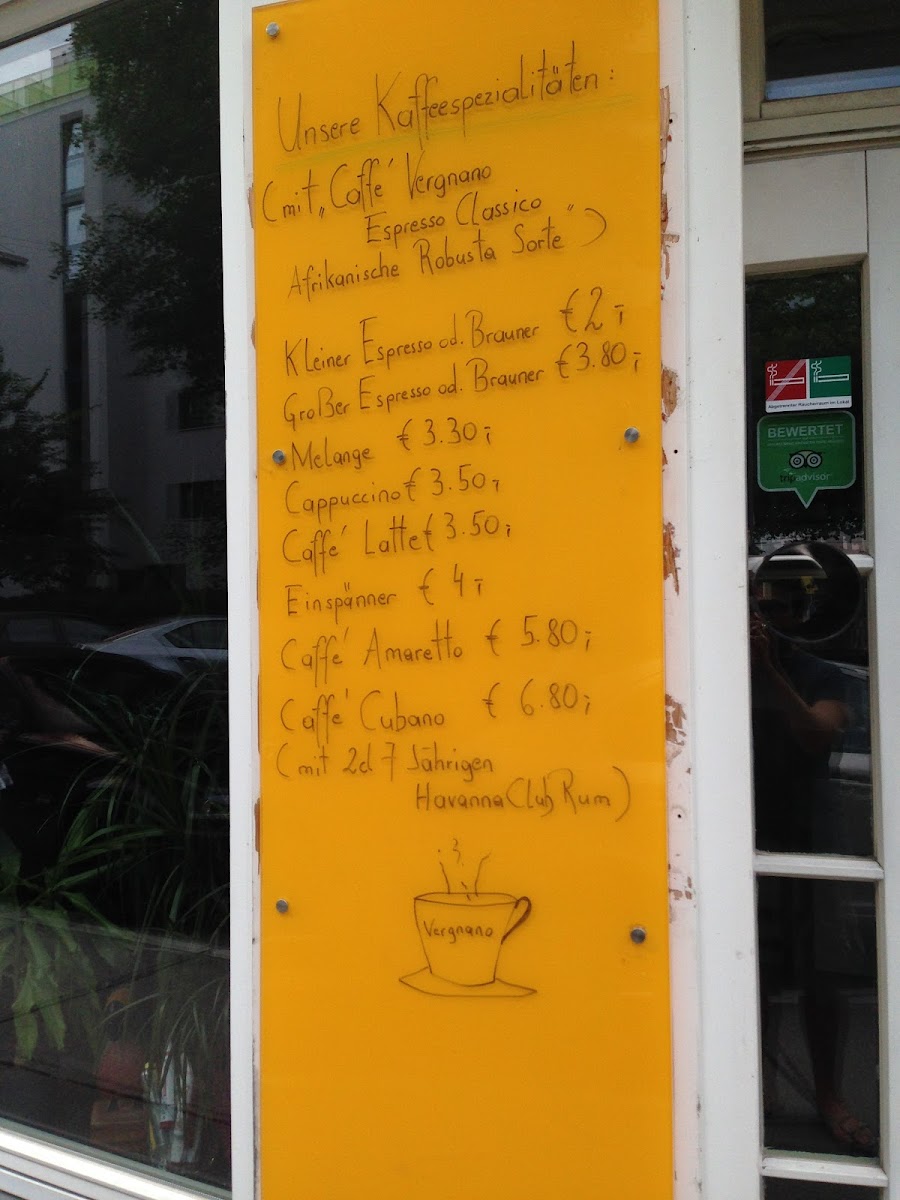 Unsere Kaffeespezialitäten:
(mit „Caffé Vergnano
Espresso Classico"
Afrikanische Robusta Sorte)
Kleiner Espresso od. Brauner €2,-
Großer Espresso od. Brauner €3.80,-
Melange €3.30,-
Cappuccino €3.50,-
Caffé Latte €3.50,-
Einspänner €4,-
Caffé Amaretto €5.80,-
Caffé Cubano €6.80,-
(mit 2cl 7 Jährigen
Havanna Club Rum)
Vergnano
Abgetrennter Raucherraum im Lokal
BEWERTET
tripadvisor